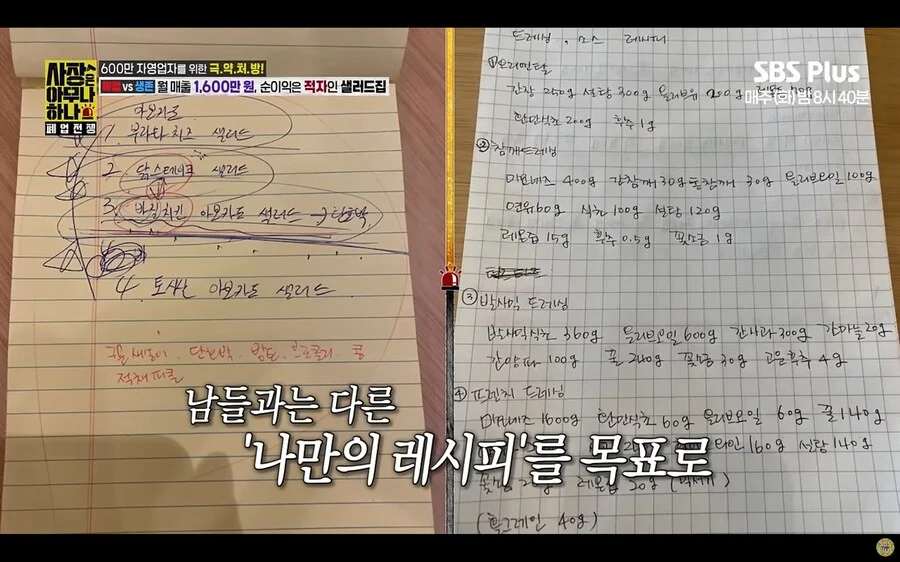 사장은
아무나
하나
폐업전쟁
600만 자영업자를 위한 극.약.처.방!
폐업 vs 생존 월 매출 1,600만 원, 순이익은 적자인 샐러드집
SBS Plus
매주 (화) 밤 8시 40분
1. 부라타치즈 샐러드
2. 닭스테이크 샐러드
3. 바질치킨 아보카도 샐러드 →
4. 아보카도 샐러드
단호박
적채피클
드레싱, 소스 레시피
① 오리엔탈
간장 250g 설탕 300g 올리브유
200g 후추 1g
② 참깨드레싱
마요네즈 400g 간참깨 30g 통참깨 30g 올리브오일 100g
연유 60g 식초 100g 설탕 120g
레몬즙 15g 후추 0.5g 꽃소금 1g
③ 발사믹 드레싱
발사믹식초 360g 올리브오일 600g 간사과 300g 간마늘 20g
간양파 100g 꿀 240g 꽃소금 30g 고운후추 4g
④ 프렌치 드레싱
마요네즈 1600g 60g 올리브오일 60g 꿀 140g
160g 설탕 140g
레몬즙 20g
(홀그레인 40g)
남들과는 다른
'나만의 레시피'를 목표로